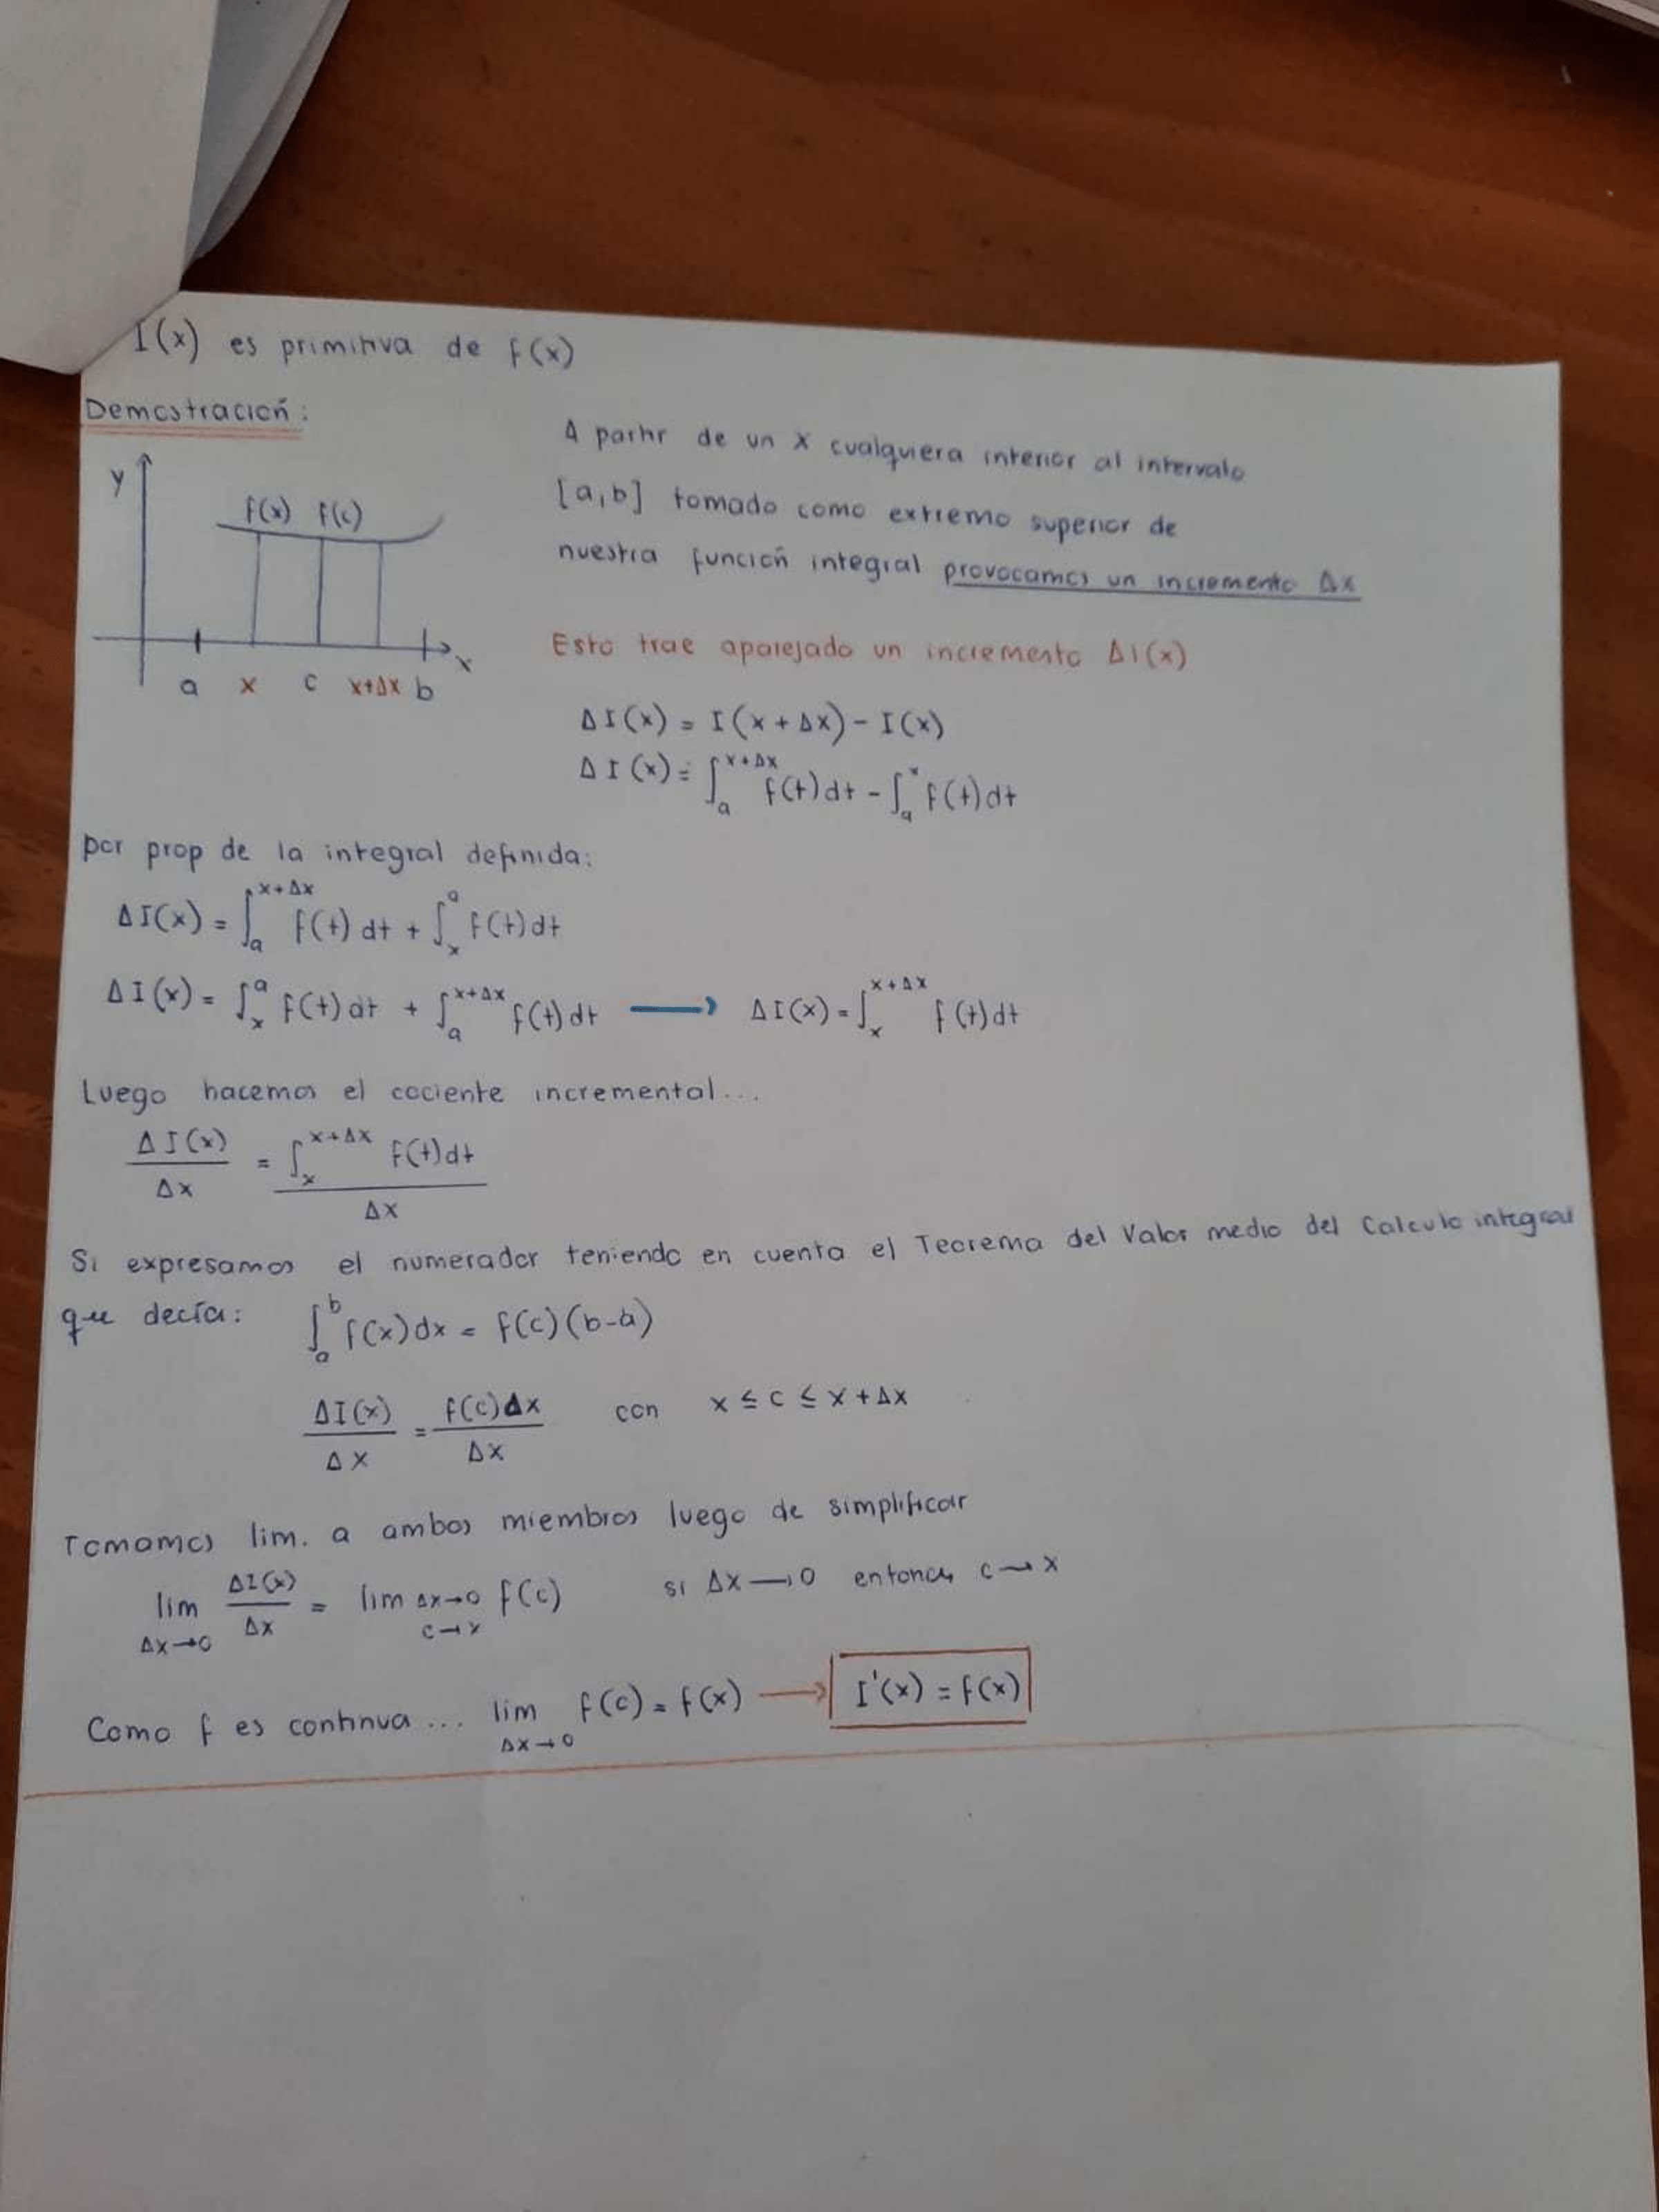 I(x) es primitiva de f(x)
Demostración:
y
f(x) f(c)
a x c x+Δx b x
A partir de un x cualquiera interior al intervalo
[a,b] tomado como extremo superior de
nuestra función integral provocamos un incremento Δx
Esto trae aparejado un incremento ΔI(x)
ΔI(x) = I(x+Δx) - I(x)
ΔI(x) = ∫_a^{x+Δx} f(t)dt - ∫_a^x f(t)dt
por prop de la integral definida:
ΔI(x) = ∫_a^{x+Δx} f(t)dt + ∫_x^a f(t)dt
ΔI(x) = ∫_x^a f(t)dt + ∫_a^{x+Δx} f(t)dt → ΔI(x) = ∫_x^{x+Δx} f(t)dt
Luego hacemos el cociente incremental...
ΔI(x)/Δx = ∫_x^{x+Δx} f(t)dt / Δx
Si expresamos el numerador teniendo en cuenta el Teorema del Valor medio del Calculo integral
que decía: ∫_a^b f(x)dx = f(c)(b-a)
ΔI(x)/Δx = f(c)Δx/Δx con x ≤ c ≤ x+Δx
Tomamos lim. a ambos miembros luego de simplificar
lim Δx→0 ΔI(x)/Δx = lim Δx→0 c→x f(c) si Δx→0 entonces c→x
Como f es continua... lim Δx→0 f(c) = f(x) → I'(x) = f(x)